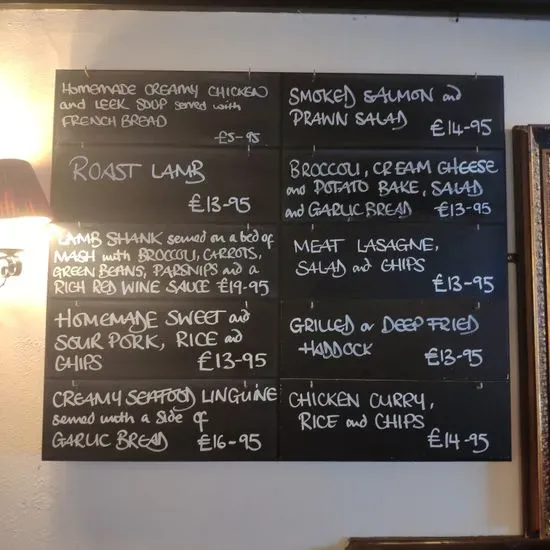 HOMEMADE CREAMY CHICKEN
and LEEK SOUP served with
FRENCH BREAD
£5-95
ROAST LAMB
£13-95
LAMB SHANK served on a bed of
MASH with BROCCOLI, CARROTS,
GREEN BEANS, PARSNIPS and a
RICH RED WINE SAUCE £19-95
HOMEMADE SWEET and
SOUR PORK, RICE and
CHIPS £13-95
CREAMY SEAFOOD LINGUINE
served with a side of
GARLIC BREAD £16-95
SMOKED SALMON and
PRAWN SALAD £14-95
BROCCOLI, CREAM CHEESE
and POTATO BAKE, SALAD
and GARLIC BREAD £13-95
MEAT LASAGNE,
SALAD and CHIPS
£13-95
GRILLED or DEEP FRIED
HADDOCK £13-95
CHICKEN CURRY,
RICE and CHIPS
£14-95